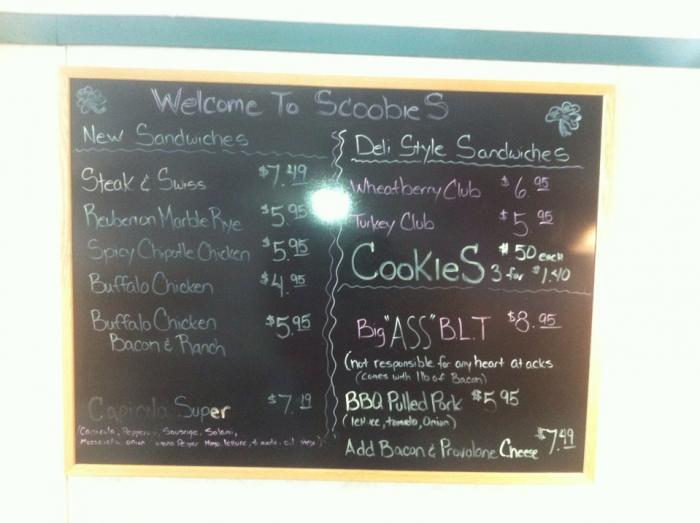 Welcome To ScoobieS
New Sandwiches
Steak & Swiss $7.49
Reuben on Marble Rye $5.95
Spicy Chipotle Chicken $5.95
Buffalo Chicken $4.95
Buffalo Chicken $5.95
Bacon & Ranch
Capicola Super
Sausage, Salami,
onion
Deli Style Sandwiches
Wheatberry Club $6.95
Turkey Club $5.95
CookieS $.50 each
3 for $1.40
Big "ASS" B.L.T $8.95
(not responsible for any heart atacks
(comes with 1lb of Bacon)
BBQ Pulled Pork $5.95
(lettuce, tomato, Onion)
Add Bacon & Provalone Cheese $7.49